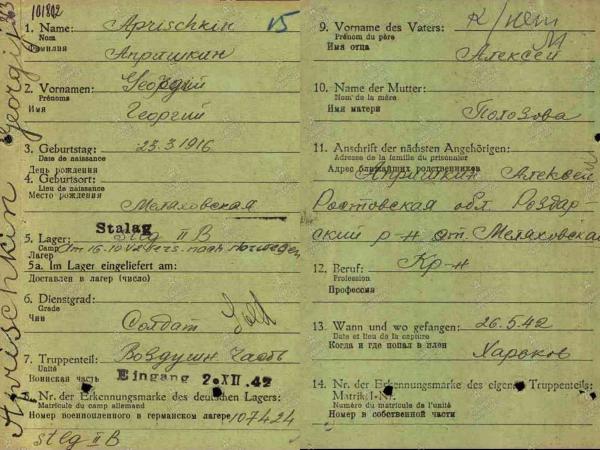 101802
Aprischkin Georgij
1. Name: Aprischkin 15
Nom
Фамилия Апришкин
2. Vornamen: Georgij
Prénoms
Имя Георгий
3. Geburtstag: 23.3.1916
Date de naissance
День рождения
4. Geburtsort:
Lieu de naissance
Место рождения Мелаховская
Stalag
5. Lager: Stlg II B
Camp
Лагерь
5a. Im Lager eingeliefert am:
Доставлен в лагерь (число)
6. Dienstgrad:
Grade
Чин Солдат Sold
7. Truppenteil: Воздушн часть
Unité
Воинская часть Eingang 2. XII. 42
8. Nr. der Erkennungsmarke des deutschen Lagers:
Matricule du camp allemand
Номер военнопленного в германском лагере 107424
stlg II B
9. Vorname des Vaters:
Prénom du père
Имя отца Алексей
10. Name der Mutter:
Nom de la mère
Имя матери Полозова
11. Anschrift der nächsten Angehörigen:
Adresse de la famille du prisonnier
Адрес ближайших родственников
Апришкин Алексей
Ростовская обл Роздар-
ский р-н ст. Мелаховская
12. Beruf: Кр-н
Profession
Профессия
13. Wann und wo gefangen: 26.5.42
Date et lieu de la capture
Когда и где попал в плен Харьков
14. Nr. der Erkennungsmarke des eigenen Truppenteils:
Matrikl-Nr.
Numéro du matricule de l'unité
Номер в собственной части